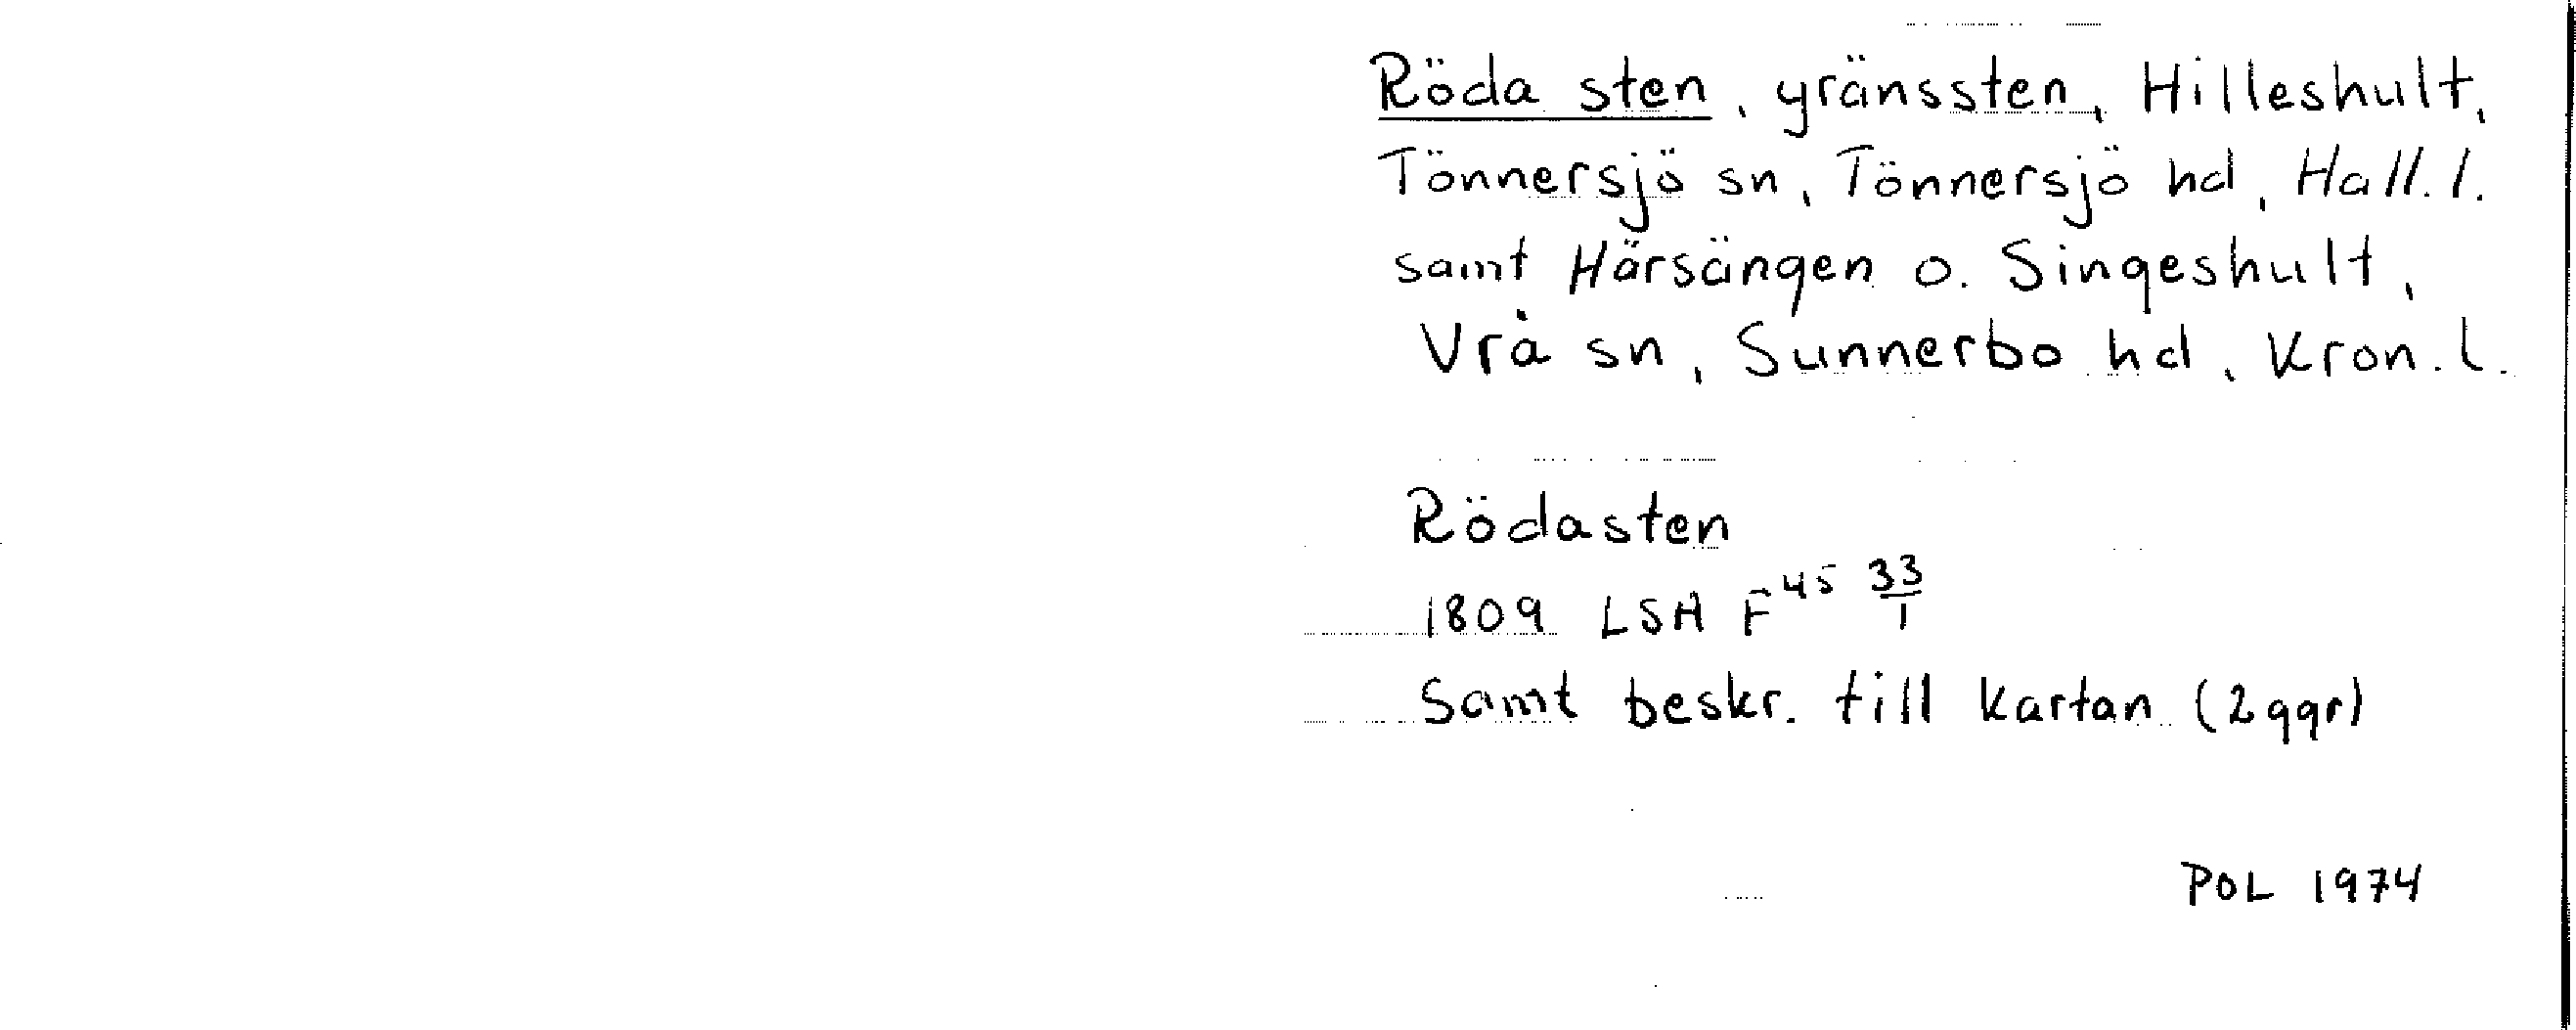 Röda sten, gränssten, Hilleshult,
Tönnersjö sn, Tönnersjö hd, Hall. l.
samt Härsängen o. Singeshult,
Vrå sn, Sunnerbo hd, Kron. l.
Rödasten
1809 LSA F45 33/1
Samt beskr. till kartan (2 ggr)
POL 1974